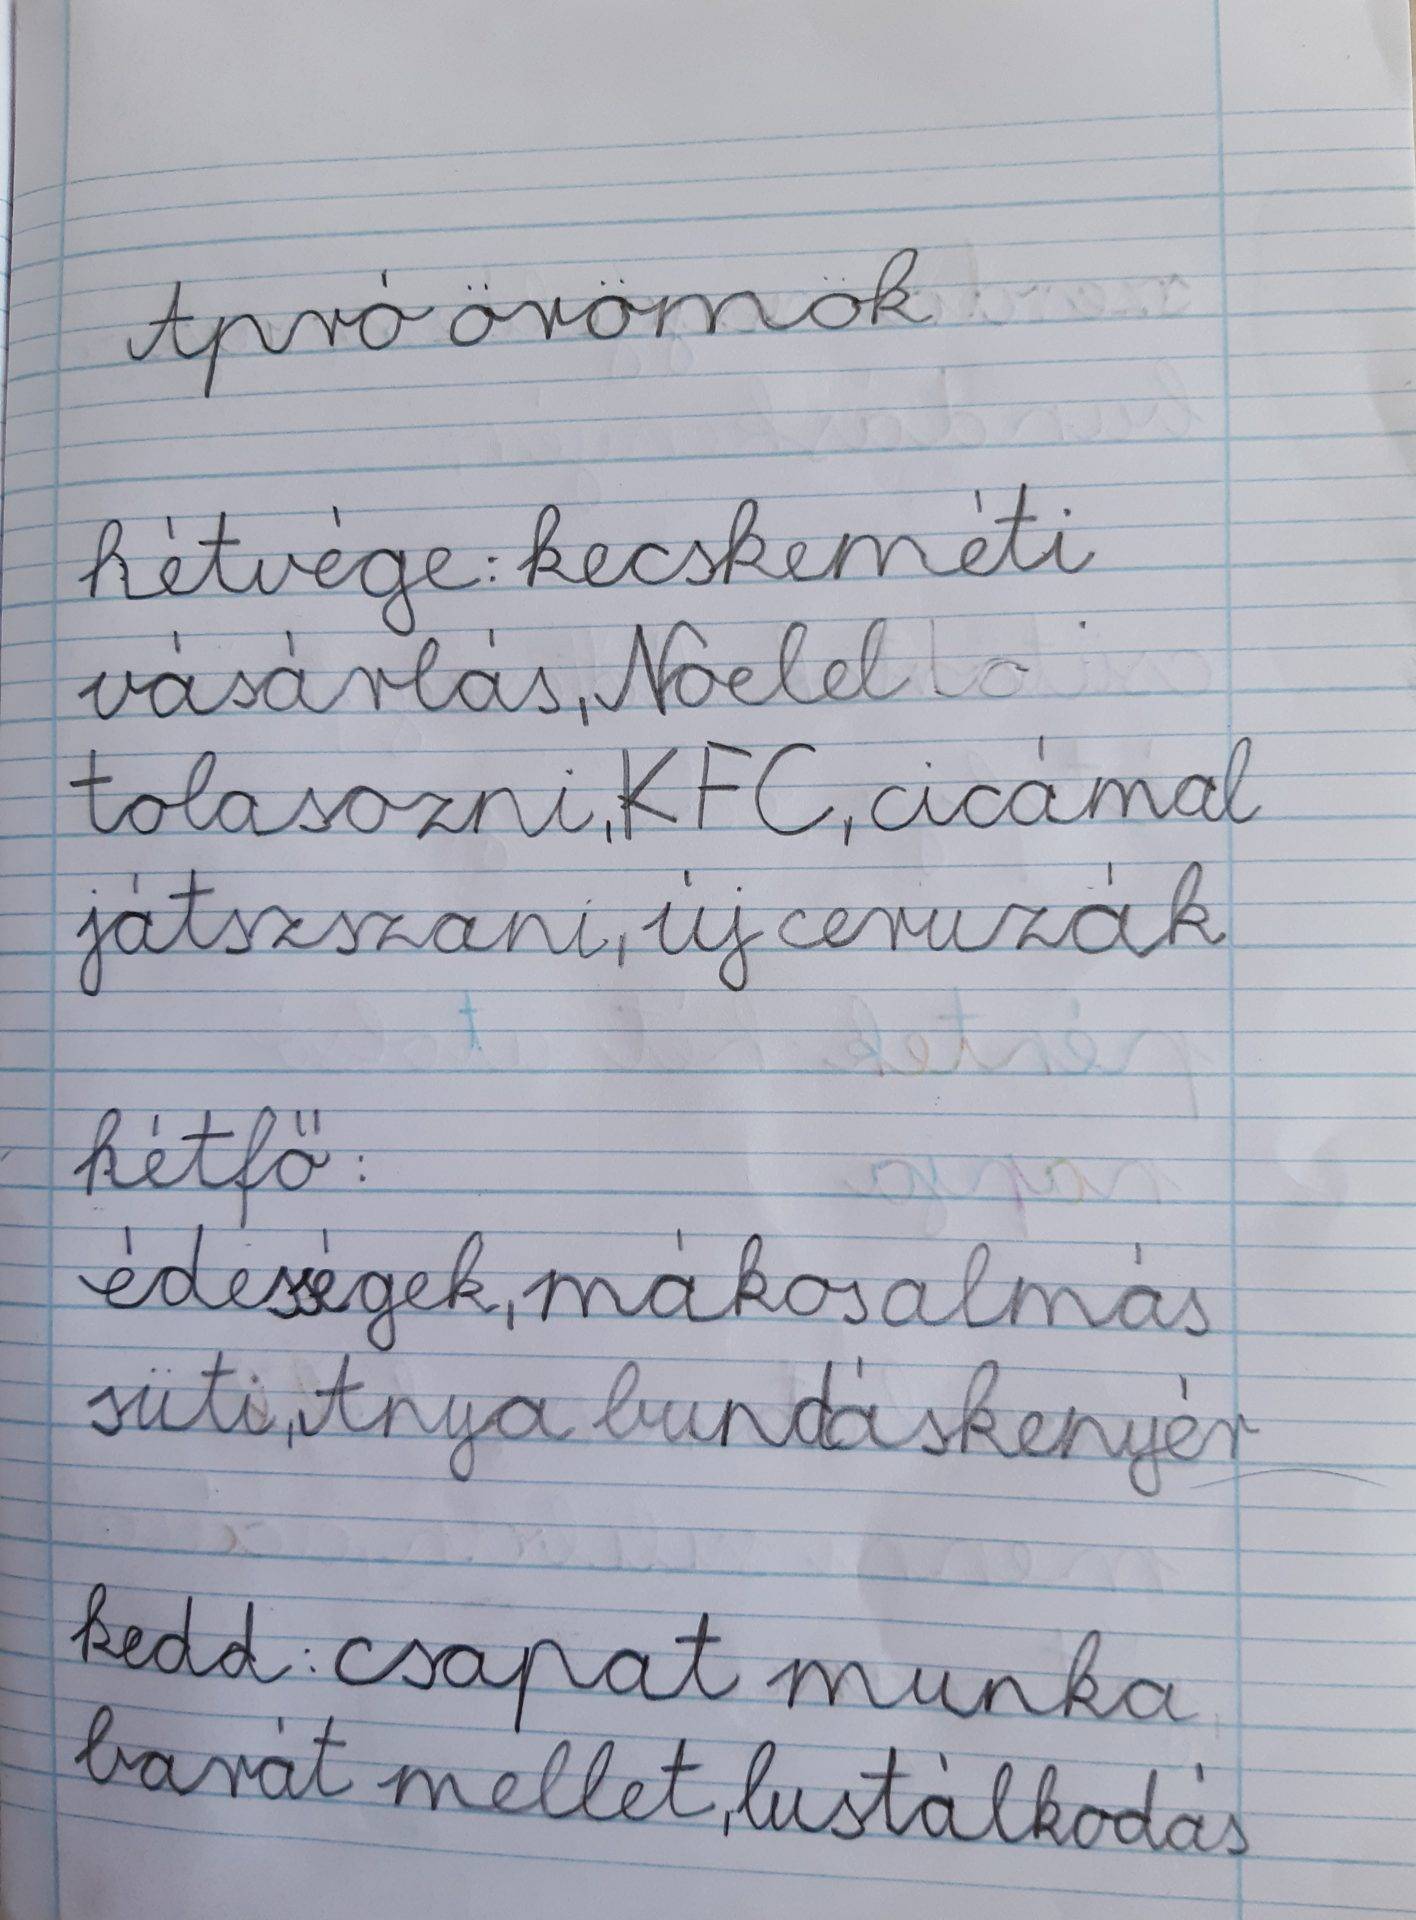 Apró örömök
hétvége: kecskeméti
vásárlás, Noelel
tolasozni, KFC, cicámal
játszszani, új ceruzák
hétfő:
édességek, mákosalmás
süti, Anya bundáskenyér
kedd: csapat munka
barát mellet, lustálkodás